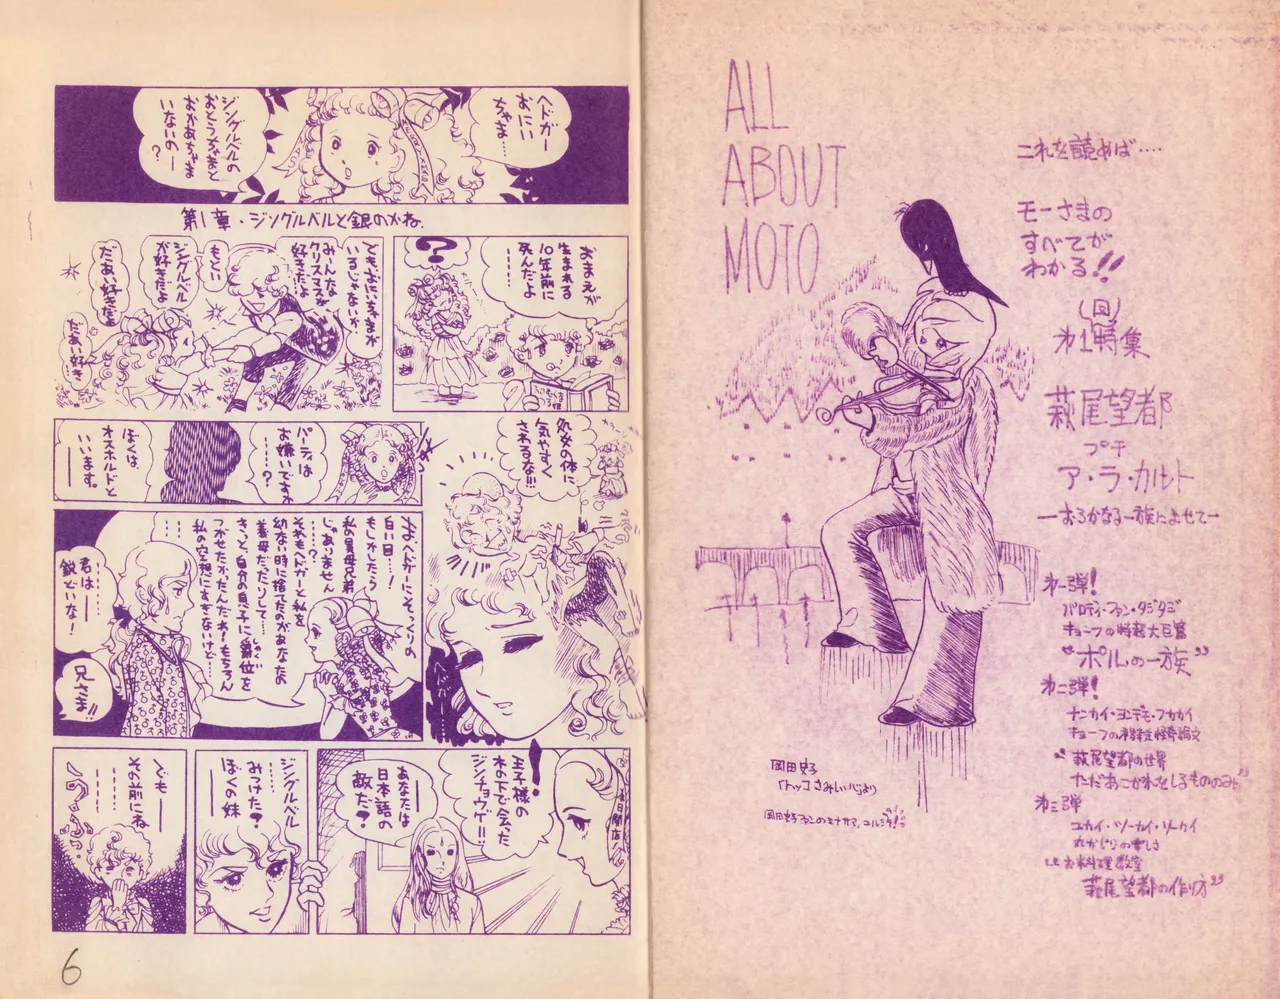 ALL
ABOUT
MOTO
これを読めば‥‥
モーさまの
すべてが
わかる!!
(回)
オ1特集
萩尾望都
プチ
ア・ラ・カルト
―おろかなる一族によせて―
オ一弾!
パロディ・ファン・タジタジ
キョーフの特超大巨篇
“ポルの一族”
オ二弾!
ナンカイ・ヨンデモ・フカカイ
キョーフの
“萩尾望都の世界
ただあこがれをしるもののみ”
オ三弾
ユカイ・ツーカイ・ソーカイ
丸かじりの
お料理教室
萩尾望都の作り方”
岡田史子
「トッコさみしい心」より
岡田史子ファンのミナサマ、ユルシテ!
ヘドガー
おにい
ちゃま…
ジングルベルの
おとうちゃまと
おかあちゃま
いないの―
?
第1章・ジングルベルと銀のかね.
おまえが
生まれる
10年前に
死んだよ
……
?
でもおにいちゃまが
いるじゃないか、
みんな
クリスマスが
好きだよ
もぐい
ジングルベル
が好きだよ
だあい好きだよ
だあい好き
処女の体に
気やすく
さわるな!!!
パーティは
お嫌いですか
……?
ぼくは
オスホルドと
いいます。
およヘドガーにそっくりの
白い目…!
もしかしたら
私の異母兄弟
じゃありません
……?
それもヘドガーと私を
幼ない時に捨てたのがあなたの
義母だったりして……
きっと自分の息子に爵位を
つがせたかったんだわ!もちろん
私の空想にすぎないけど……
しゃくい
……
君は――
鋭どいな!
兄さま!!
王子様の
木の下で会った
ジンチョウゲ!!
!
あなたは
日本語の
敵だ?
ジングルベル
みつけた?
ぼくの妹
でも――
その前にね
……
……
6